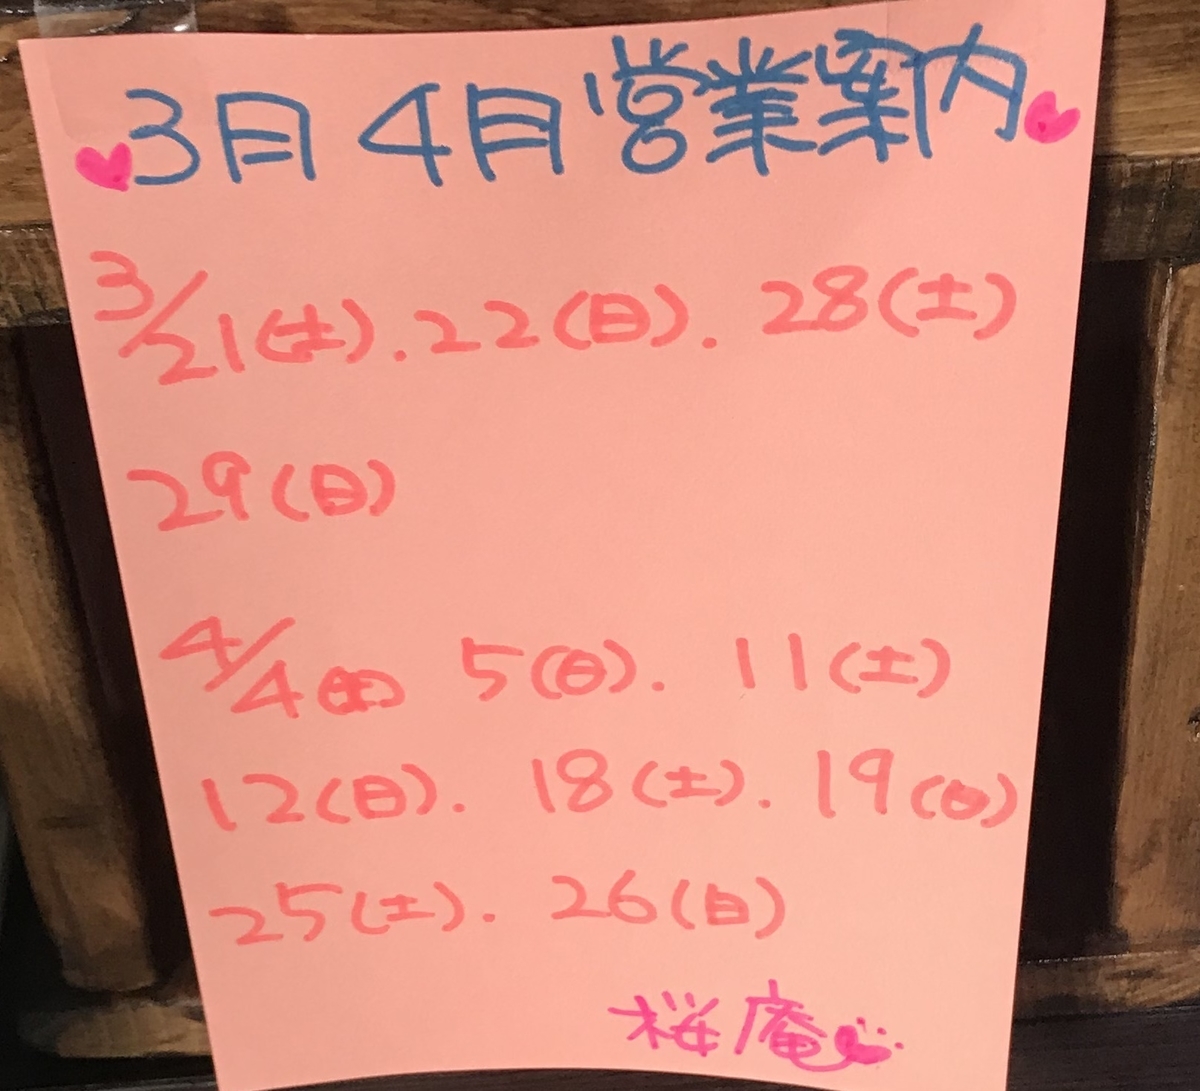 3月 4月営業案内
3/21(土).22(日).28(土)
29(日)
4/4(土) 5(日). 11(土)
12(日). 18(土). 19(日)
25(土). 26(日)
桜庵